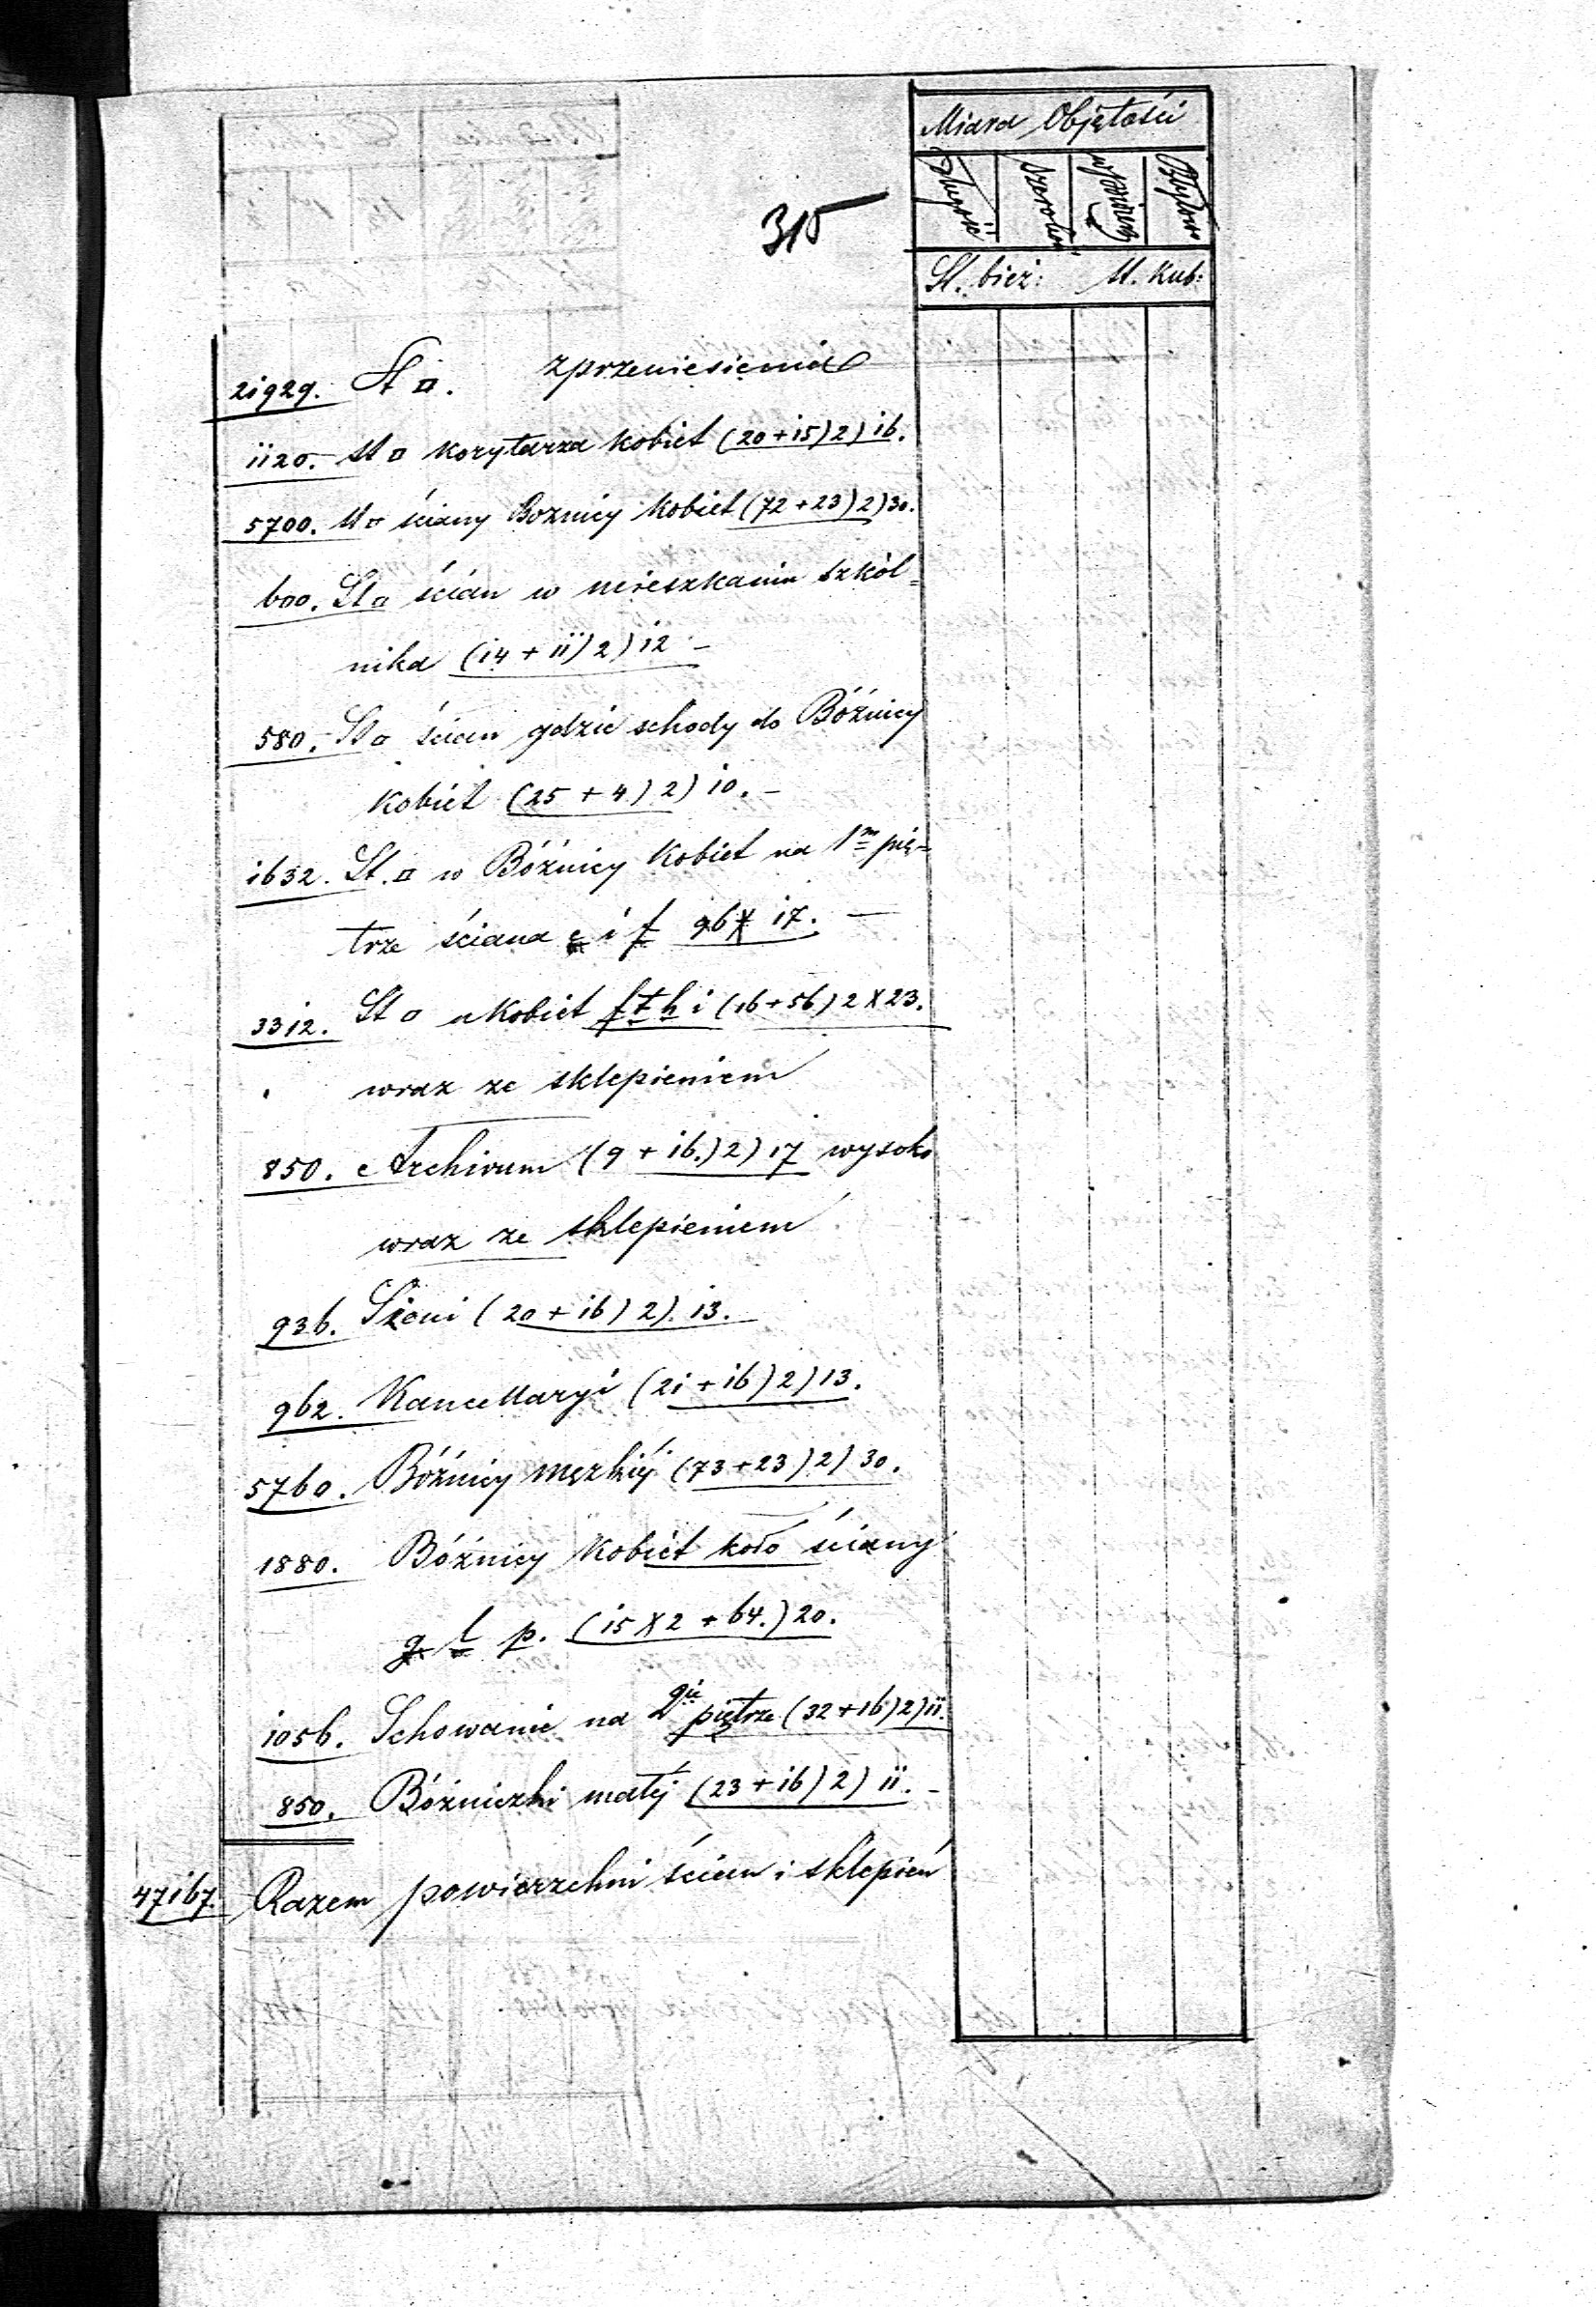 Miara Objętości
Długość
Szerokość
wysokość
Objętość
St. bież: St. kub:
315
21929. St □. z przeniesienia
1120. St □ korytarza kobiet (20+15)2)16.
5700. St □ ściany Boznicy kobiet (72+23)2)30.
600. St □ ścian w mieszkaniu szkól=
nika (14+11)2)12 -
580. St □ ścian gdzie schody do Bóźnicy
kobiet (25+4)2)10. -
1632. St. □ w Bóźnicy kobiet na 1m pię=
trze ściana e i f 96 X 17. —
3312. St □ u kobiet f t h i (16+56)2 X 23.
wraz ze sklepieniem
850. Archivum (9+16.)2)17 wysoko
wraz ze sklepieniem
936. Sieni (20+16)2).13.
962. Kancellaryi (21+16)2)13.
5760. Bóźnicy męzkiéj (73+23)2)30.
1880. Bóźnicy kobiét koło ściany
g. l p. (15 X 2 + 64.)20.
1056. Schowanie na 2gie piętrze (32+16)2)11.
850. Bóźniczki małéj (23+16)2)11. -
47167. Razem powierzchni ścian i sklepień